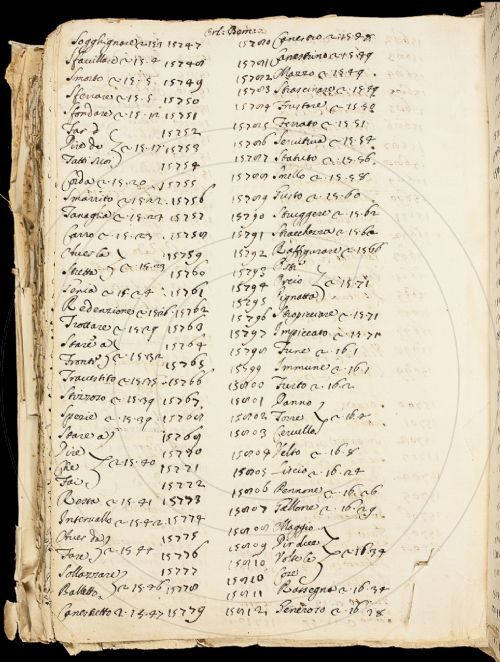 Orl: Berni:
Sogghignare c. 15.1 15747
Sfavillare c. 15.4 15748
Smorto c. 15.5. 15749
Sferrare c. 15.5 15750
Sfondare c. 15.12 15751
Far d 15752
Pie de c. 15.17 15753
Fatti 15754
Corda c. 15.20 15755
Smarrito c. 15.22. 15756
Tanaglia c. 15.27 15757
Carro c. 15.23 15758
Aver la 15759
Stretta c. 15.23 15760
Senia c. 15.24 15761
Redenzione c. 15.26 15762
Trottare c. 15.29 15763
Stare a 15764
Fronte c. 15.32 15765
Travestito c. 15.35. 15766
Stizzoso c. 15.39 15767
Spezie c. 15.39 15768
Stare a 15769
Dire 15770
Che c. 15.40 15771
Fai 15772
Resta c. 15.41 15773
Intervallo c. 15.42. 15774
Aver da 15775
Fare c. 15.44 15776
Sollazzare 15777
Balletto c. 15.46 15778
Canestretto c. 15.47 15779
15780 Canestro c. 15.48
15781 Canestrino c. 15.49
15782 Mazzo c. 15.49.
15783 Strascinare c. 15.49
15784 Frustare c. 15.50
15785 Ferrato c. 15.51
15786 Servitura c. 15.54
15787 Statuto c. 15.56.
15788 Snello c. 15.58
15789 Fusto c. 15.60
15790 Struggere c. 15.62
15791 Stracchezza c. 15.62
15792 Raffigurare c. 15.66
15793
15794 Precio c. 15.71
15795 Pignatta
15796 Stropicciare c. 15.71
15797 Impiccato c. 15.71
15798 Fune c. 16.1
15799 Immune c. 16.1
15800 Furto c. 16.2
15801 Danno
15802 Torre c. 16.4
15803 Cervello
15804 Velto c. 16.8
15805 Liscio c. 16.24
15806 Pennone c. 16.26
15807 Tallone c. 16.29
15808 Maggio
15809 Pie dee
15810 Volte le c. 16.34
15810 Core
15811 Rassegna c. 16.34
15812 Generoso c. 16.38